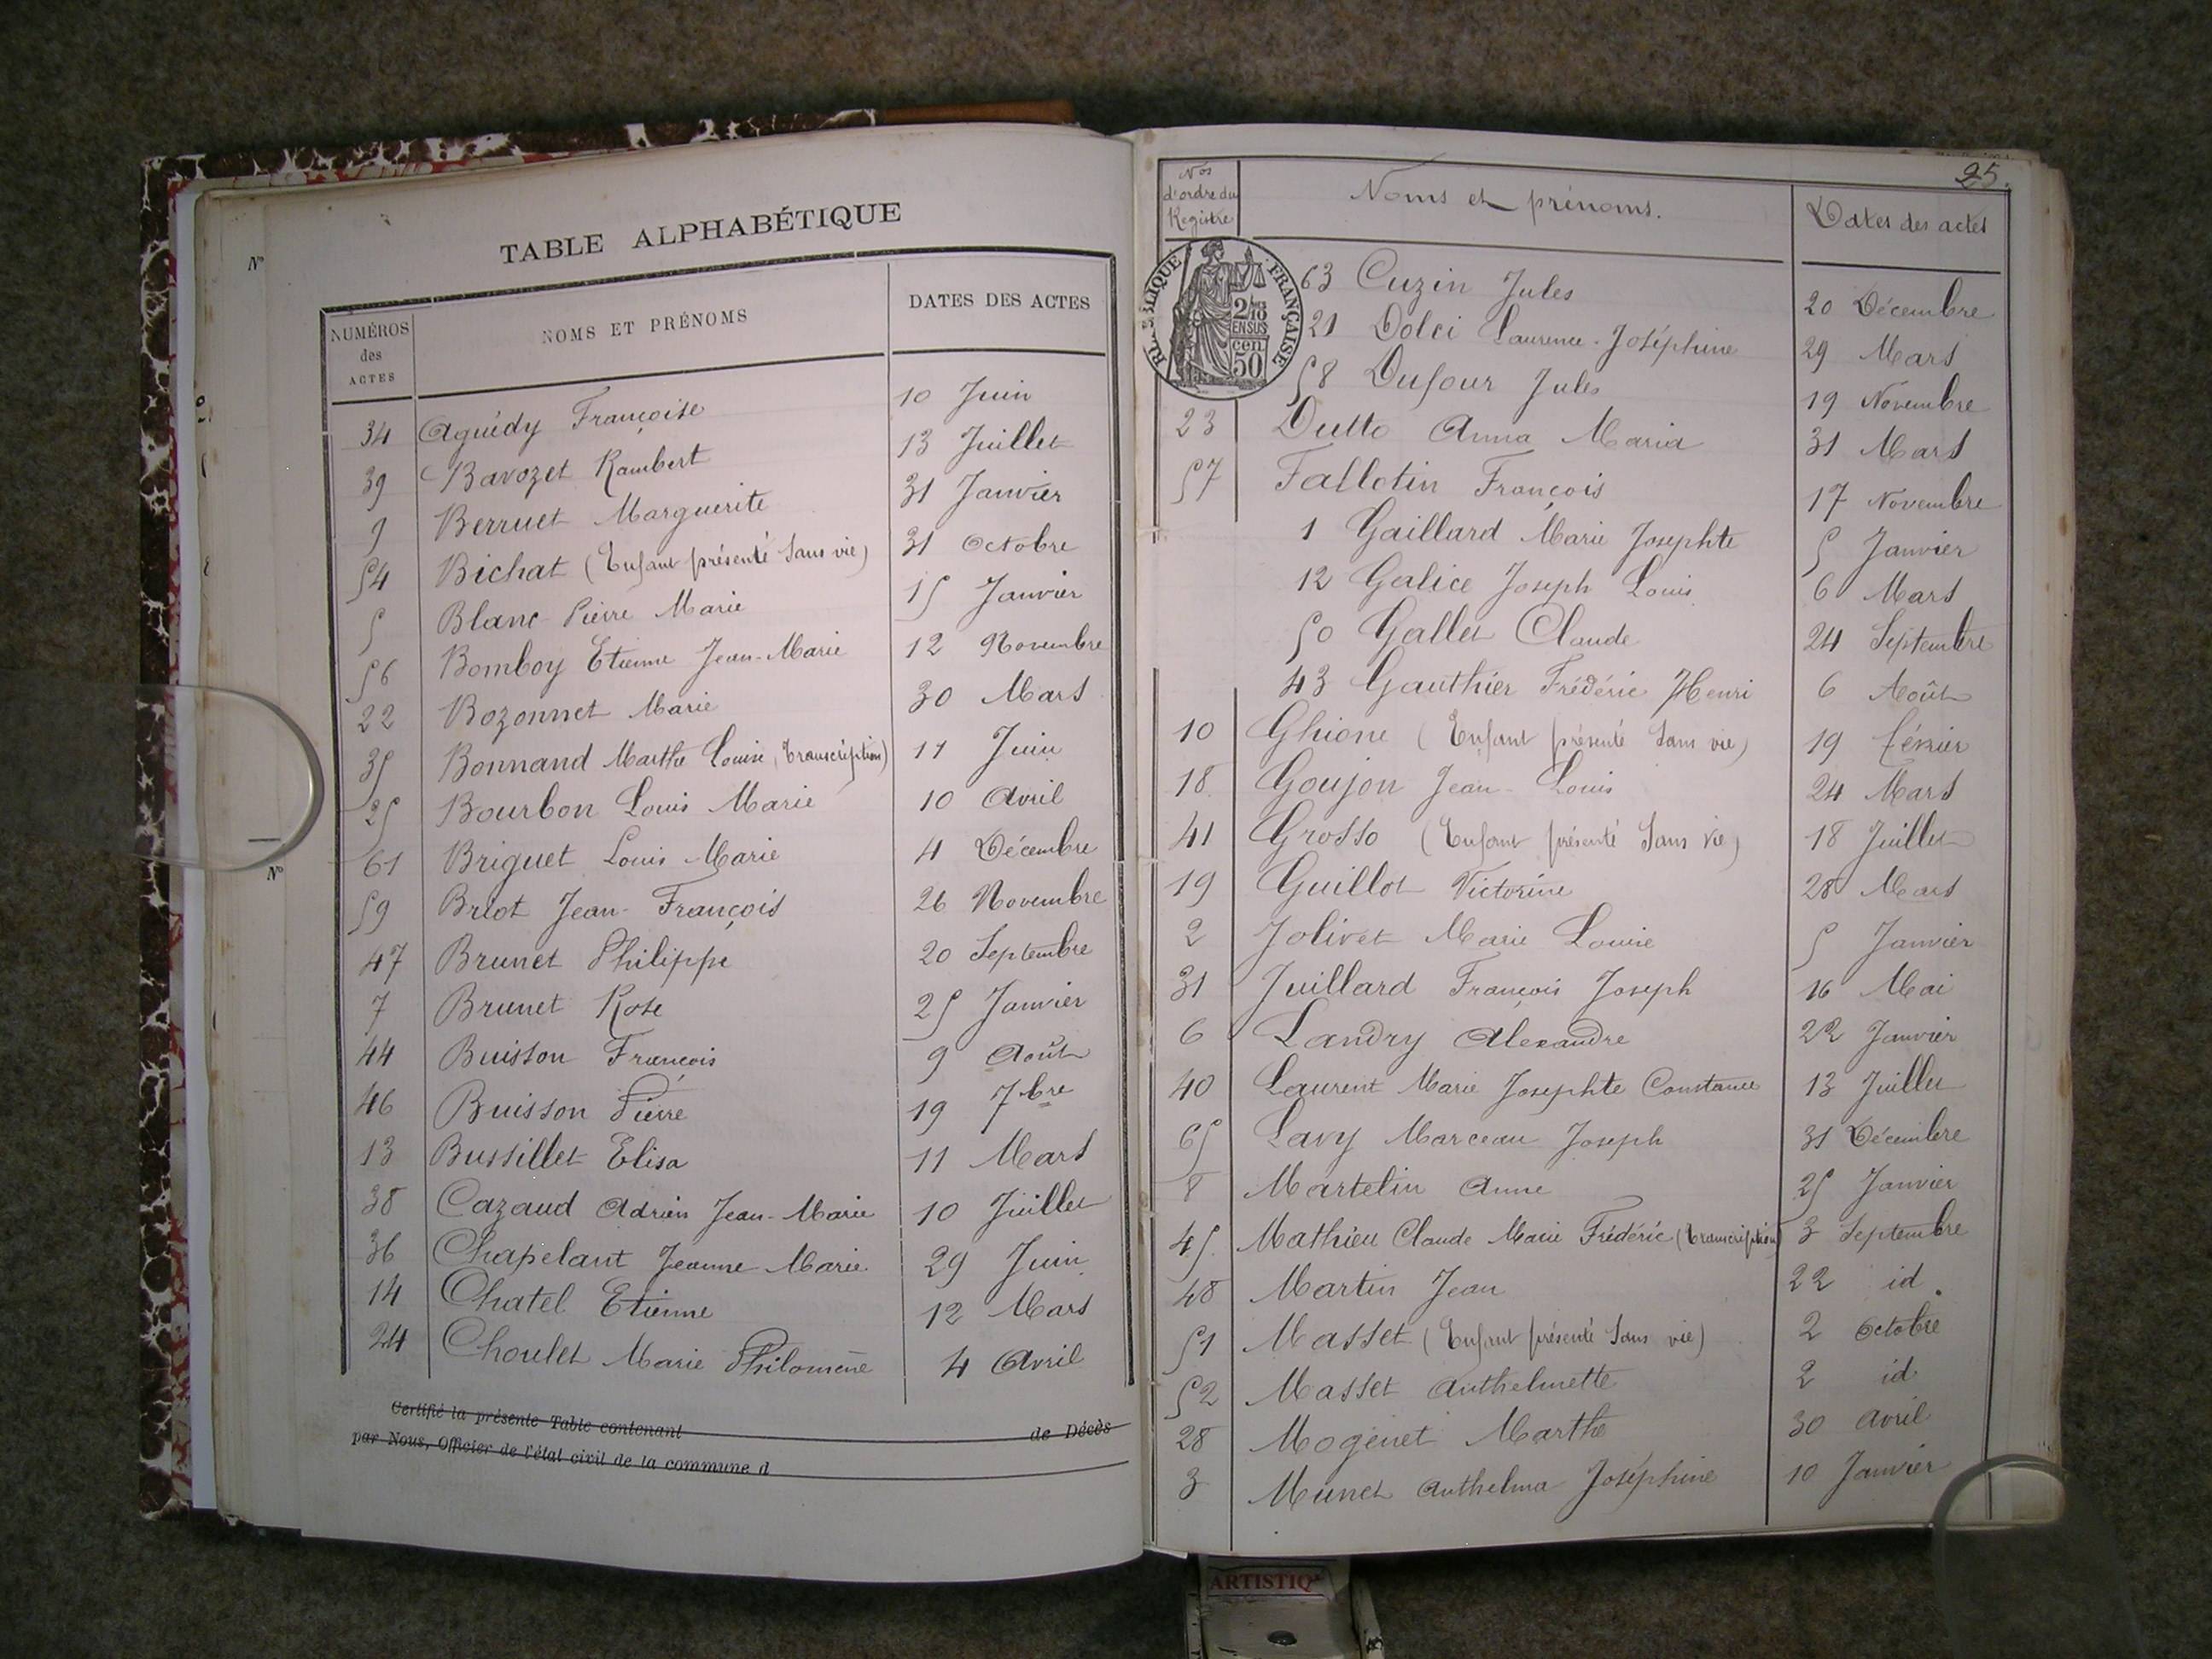 TABLE ALPHABÉTIQUE
NUMÉROS des ACTES NOMS ET PRÉNOMS DATES DES ACTES
34 Aguédy Françoise 10 Juin
39 Bavozet Rambert 13 Juillet
9 Berruet Marguerite 31 Janvier
54 Bichat (Enfant présenté sans vie) 31 Octobre
5 Blanc Pierre Marie 15 Janvier
56 Bomboy Etienne Jean-Marie 12 Novembre
22 Bozonnet Marie 30 Mars
35 Bonnand Marthe Louise (transcription) 11 Juin
25 Bourbon Louis Marie 10 Avril
61 Briguet Louis Marie 4 Décembre
59 Briot Jean-François 26 Novembre
47 Brunet Philippe 20 Septembre
7 Brunet Rose 25 Janvier
44 Buisson François 9 Août
46 Buisson Pierre 19 7bre
13 Bussillet Elisa 11 Mars
38 Cazaud Adrien Jean-Marie 10 Juillet
36 Chapelant Jeanne Marie 29 Juin
14 Chatel Etienne 12 Mars
24 Choulet Marie Philomène 4 Avril
Certifié la présente Table contenant de Décès
par Nous, Officier de l'état civil de la commune d
N°
N°
25.
Nos d'ordre du Registre Noms et prénoms. Dates des actes
RÉPUBLIQUE FRANÇAISE
2/10 EN SUS
cen. 50
63 Cuzin Jules 20 Décembre
21 Dolci Laurence-Joséphine 29 Mars
58 Dufour Jules 19 Novembre
23 Dutto Anna Maria 31 Mars
57 Fallotin François 17 Novembre
1 Gaillard Marie Josephte 5 Janvier
12 Galice Joseph Louis 6 Mars
50 Gallet Claude 24 Septembre
43 Gauthier Frédéric Henri 6 Août
10 Ghione (Enfant présenté sans vie) 19 février
18 Goujon Jean-Louis 24 Mars
41 Grosso (Enfant présenté sans vie) 18 Juillet
19 Guillot Victorine 28 Mars
2 Jolivet Marie Louise 5 Janvier
31 Juillard François Joseph 16 Mai
6 Landry Alexandre 22 Janvier
40 Laurent Marie Josephte Constance 13 Juillet
65 Lavy Marceau Joseph 31 Décembre
8 Martelin Anne 25 Janvier
45 Mathieu Claude Marie Frédéric (transcription) 3 Septembre
48 Martin Jean 22 id.
51 Masset (Enfant présenté sans vie) 2 Octobre
52 Masset Anthelmette 2 id
28 Mogenet Marthe 30 Avril
3 Munet Anthelma Joséphine 10 Janvier
ARTISTIQ